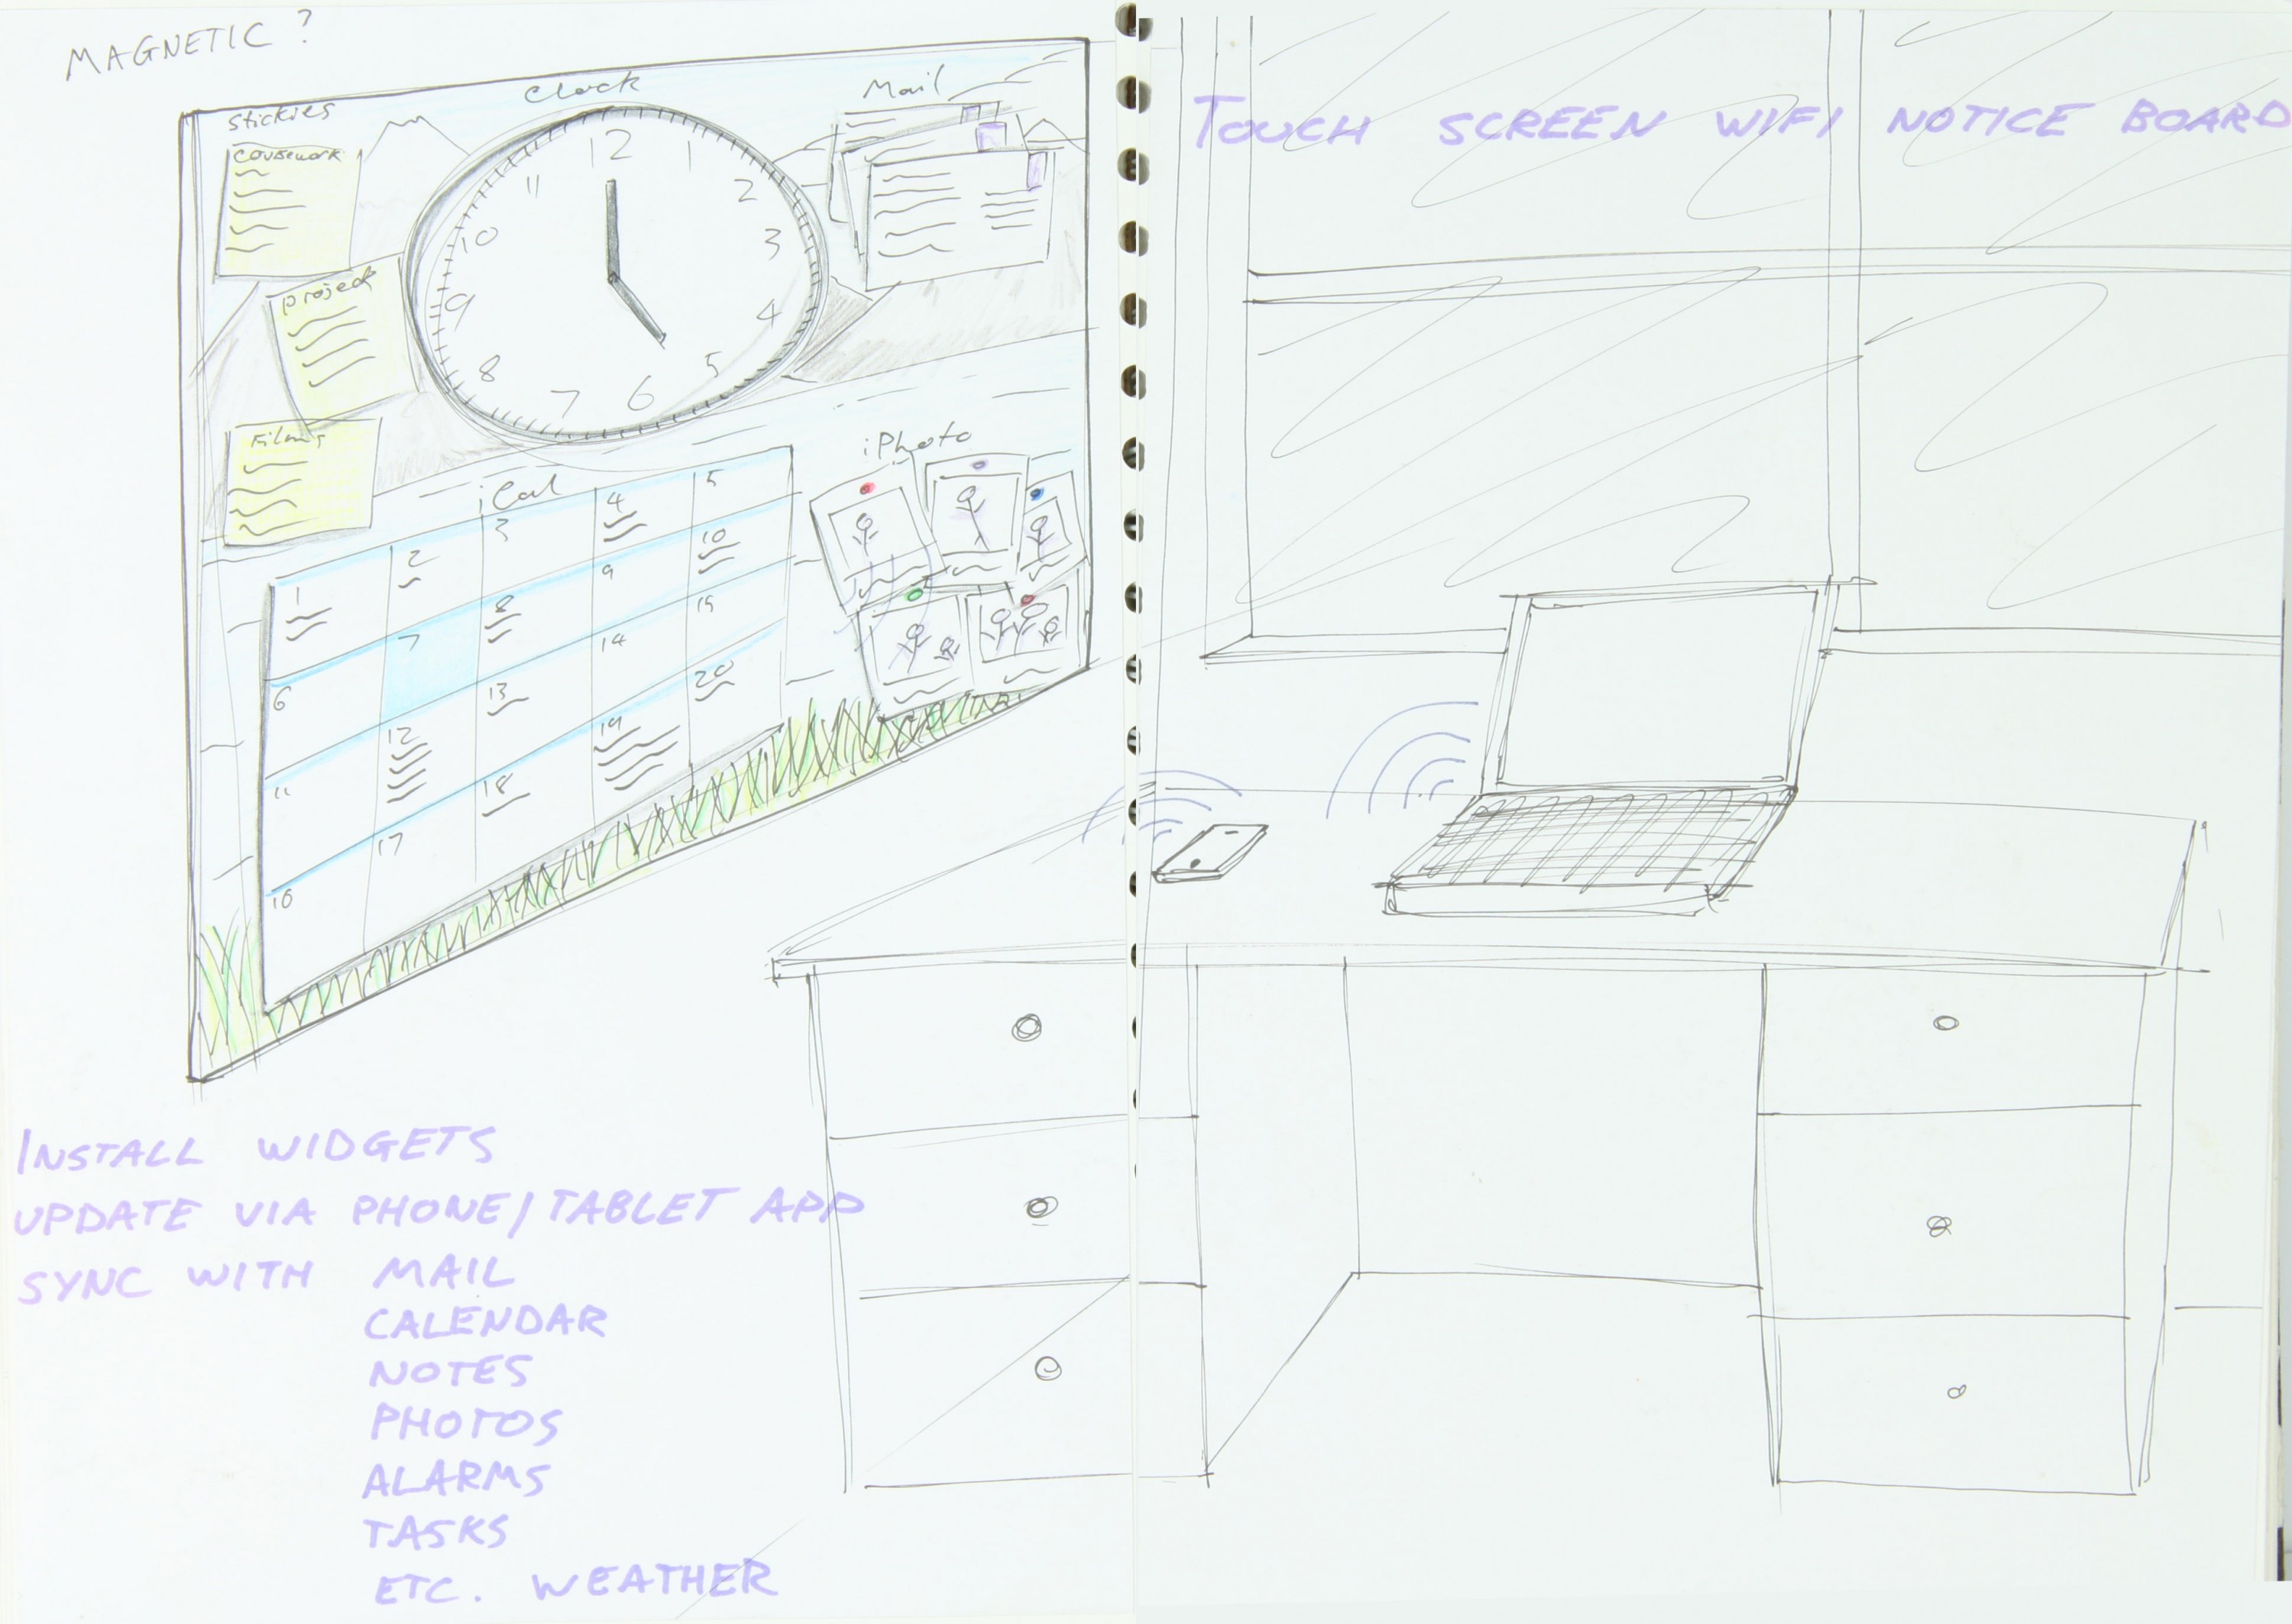 MAGNETIC ?
Clock
Mail
Stickies
Coursework
Project
Films
12
1
2
3
4
5
6
7
8
9
10
11
iPhoto
iCal
1
2
3
4
5
6
7
8
9
10
11
12
13
14
15
16
17
18
19
20
TOUCH SCREEN WIFI NOTICE BOARD
INSTALL WIDGETS
UPDATE VIA PHONE/TABLET APP
SYNC WITH MAIL
CALENDAR
NOTES
PHOTOS
ALARMS
TASKS
ETC. WEATHER